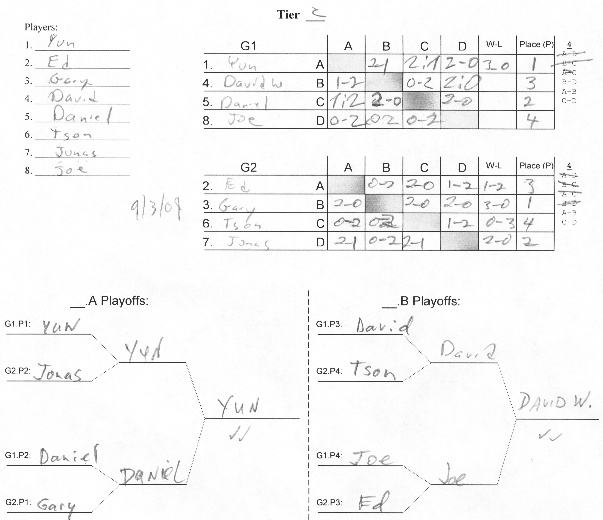 Tier 2
Players:
1. Yun
2. Ed
3. Gary
4. David
5. Daniel
6. Tson
7. Jonas
8. Joe
G1 A B C D W-L Place (P) 4
1. Yun A 2-1 2-1 2-0 3-0 1
4. David W B 1-2 0-2 2-0 3
5. Daniel C 1-2 2-0 2-0 2
8. Joe D 0-2 0-2 0-2 4
B-D
A-B
C-D
9/3/08
G2 A B C D W-L Place (P) 4
2. Ed A 0-2 2-0 1-2 1-2 3
3. Gary B 2-0 2-0 2-0 3-0 1
6. Tson C 0-2 0-2 1-2 0-3 4
7. Jonas D 2-1 0-2 2-1 2-0 2
A-B
C-D
__.A Playoffs:
G1.P1: Yun
Yun
G2.P2: Jonas
YUN
G1.P2: Daniel
DANIEL
G2.P1: Gary
__.B Playoffs:
G1.P3. David
David
G2.P4: Tson
DAVID W.
G1.P4: Joe
Joe
G2.P3: Ed